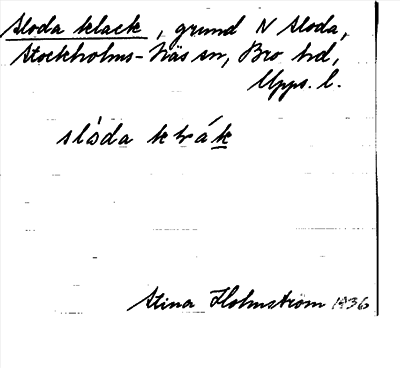 Sloda klack, grund N Sloda,
Stockholms-Näs sn, Bro hd,
Upps. l.
slòda krák
Stina Holmström 1936